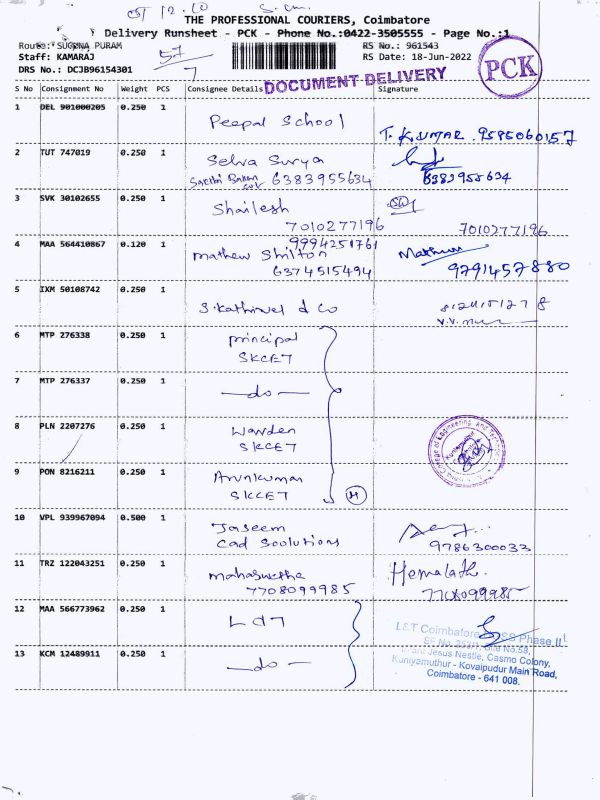 THE PROFESSIONAL COURIERS, Coimbatore
Delivery Runsheet - PCK - Phone No.:0422-3505555 - Page No.:1
Route: SUGUNA PURAM
RS No.: 961543
Staff: KAMARAJ
57
RS Date: 18-Jun-2022
DRS No.: DCJB96154301
7
DOCUMENT DELIVERY
PCK
S No Consignment No Weight PCS Consignee Details Signature
1 DEL 901000205 0.250 1 Peepal School T. KUMAR . 9585060157
2 TUT 747019 0.250 1 Selva Surya
6383955634 6383955634
3 SVK 30102655 0.250 1 Shailesh
7010277196 7010277196
9994251761
4 MAA 564410867 0.120 1 Mathew Shilton
6374515494 9791457880
5 IXM 50108742 0.250 1 S.Kathirvel & Co
6 MTP 276338 0.250 1 principal
SKCET
7 MTP 276337 0.250 1 —do—
8 PLN 2207276 0.250 1 Warden
SKCET
9 PON 8216211 0.250 1 Arunkumar
SKCET
10 VPL 939967094 0.500 1 Jaseem
Cad Soolutions 9786300033
11 TRZ 122043251 0.250 1 Mahaswetha Hemalath.
7708099985 7708099985
12 MAA 566773962 0.250 1 L&T
L&T Coimbatore Phase II
13 KCM 12489911 0.250 1 —do—
Jesus Nestle, Casmo Colony,
Kuniyamuthur - Kovaipudur Main Road,
Coimbatore - 641 008.